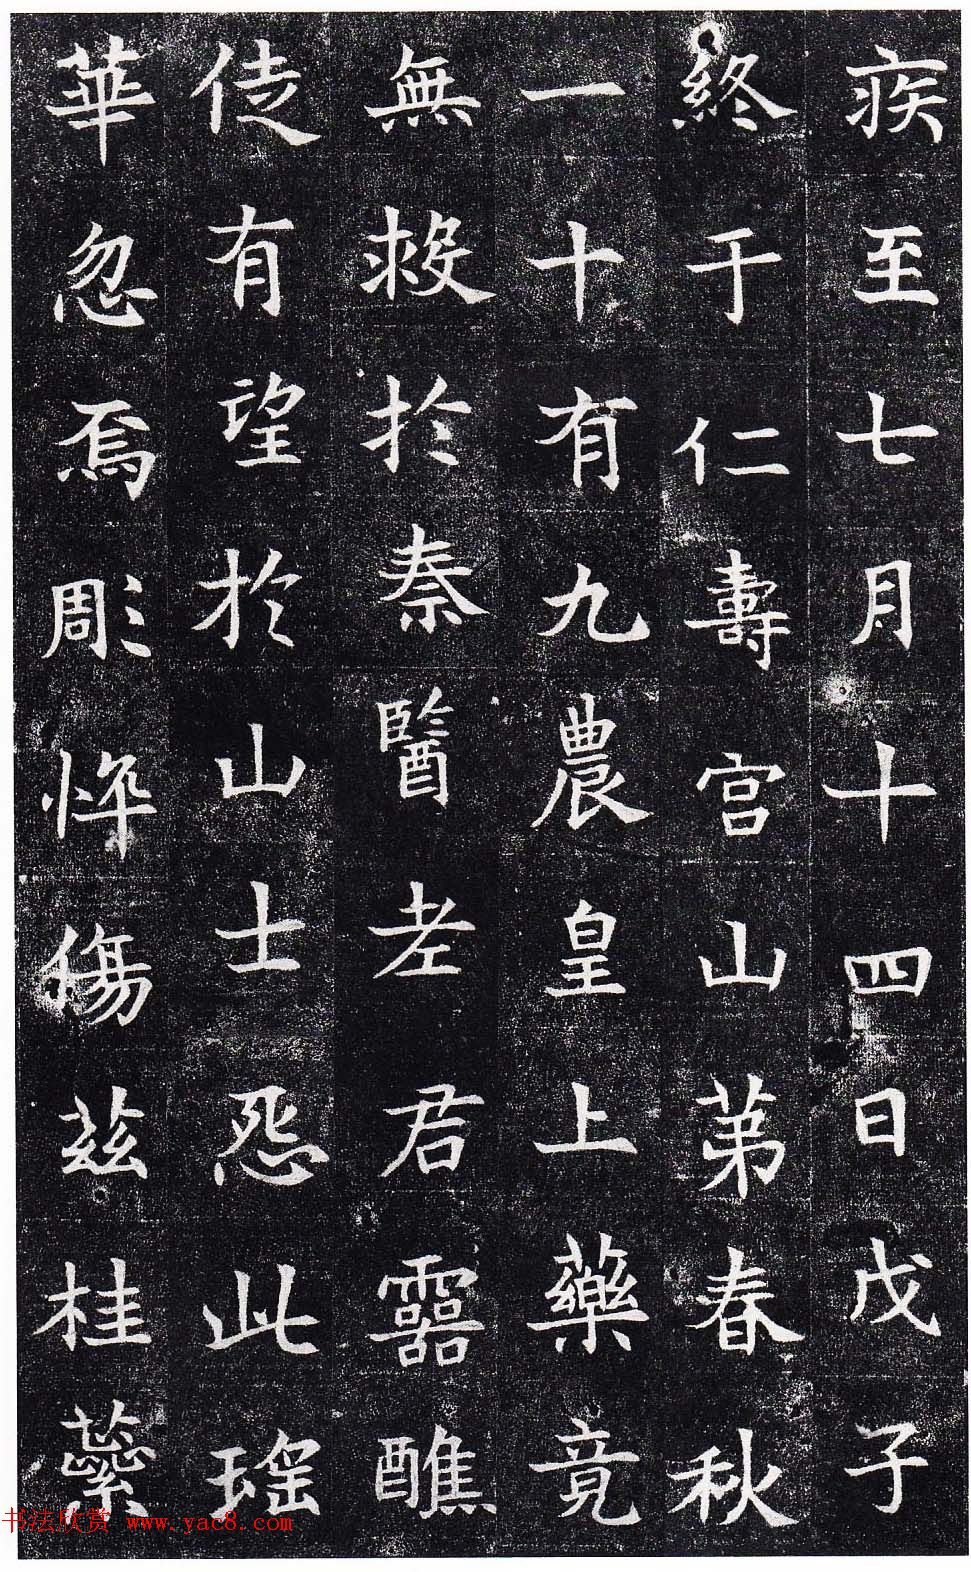 疾至七月十四日戊子
終于仁壽宮山苐春秋
一十有九農皇上藥竟
無救扵秦醫老君靈醮
徒有望扵山士怨此瑤
華忽焉彫悴傷茲桂蘂
书法欣赏 www.yac8.com